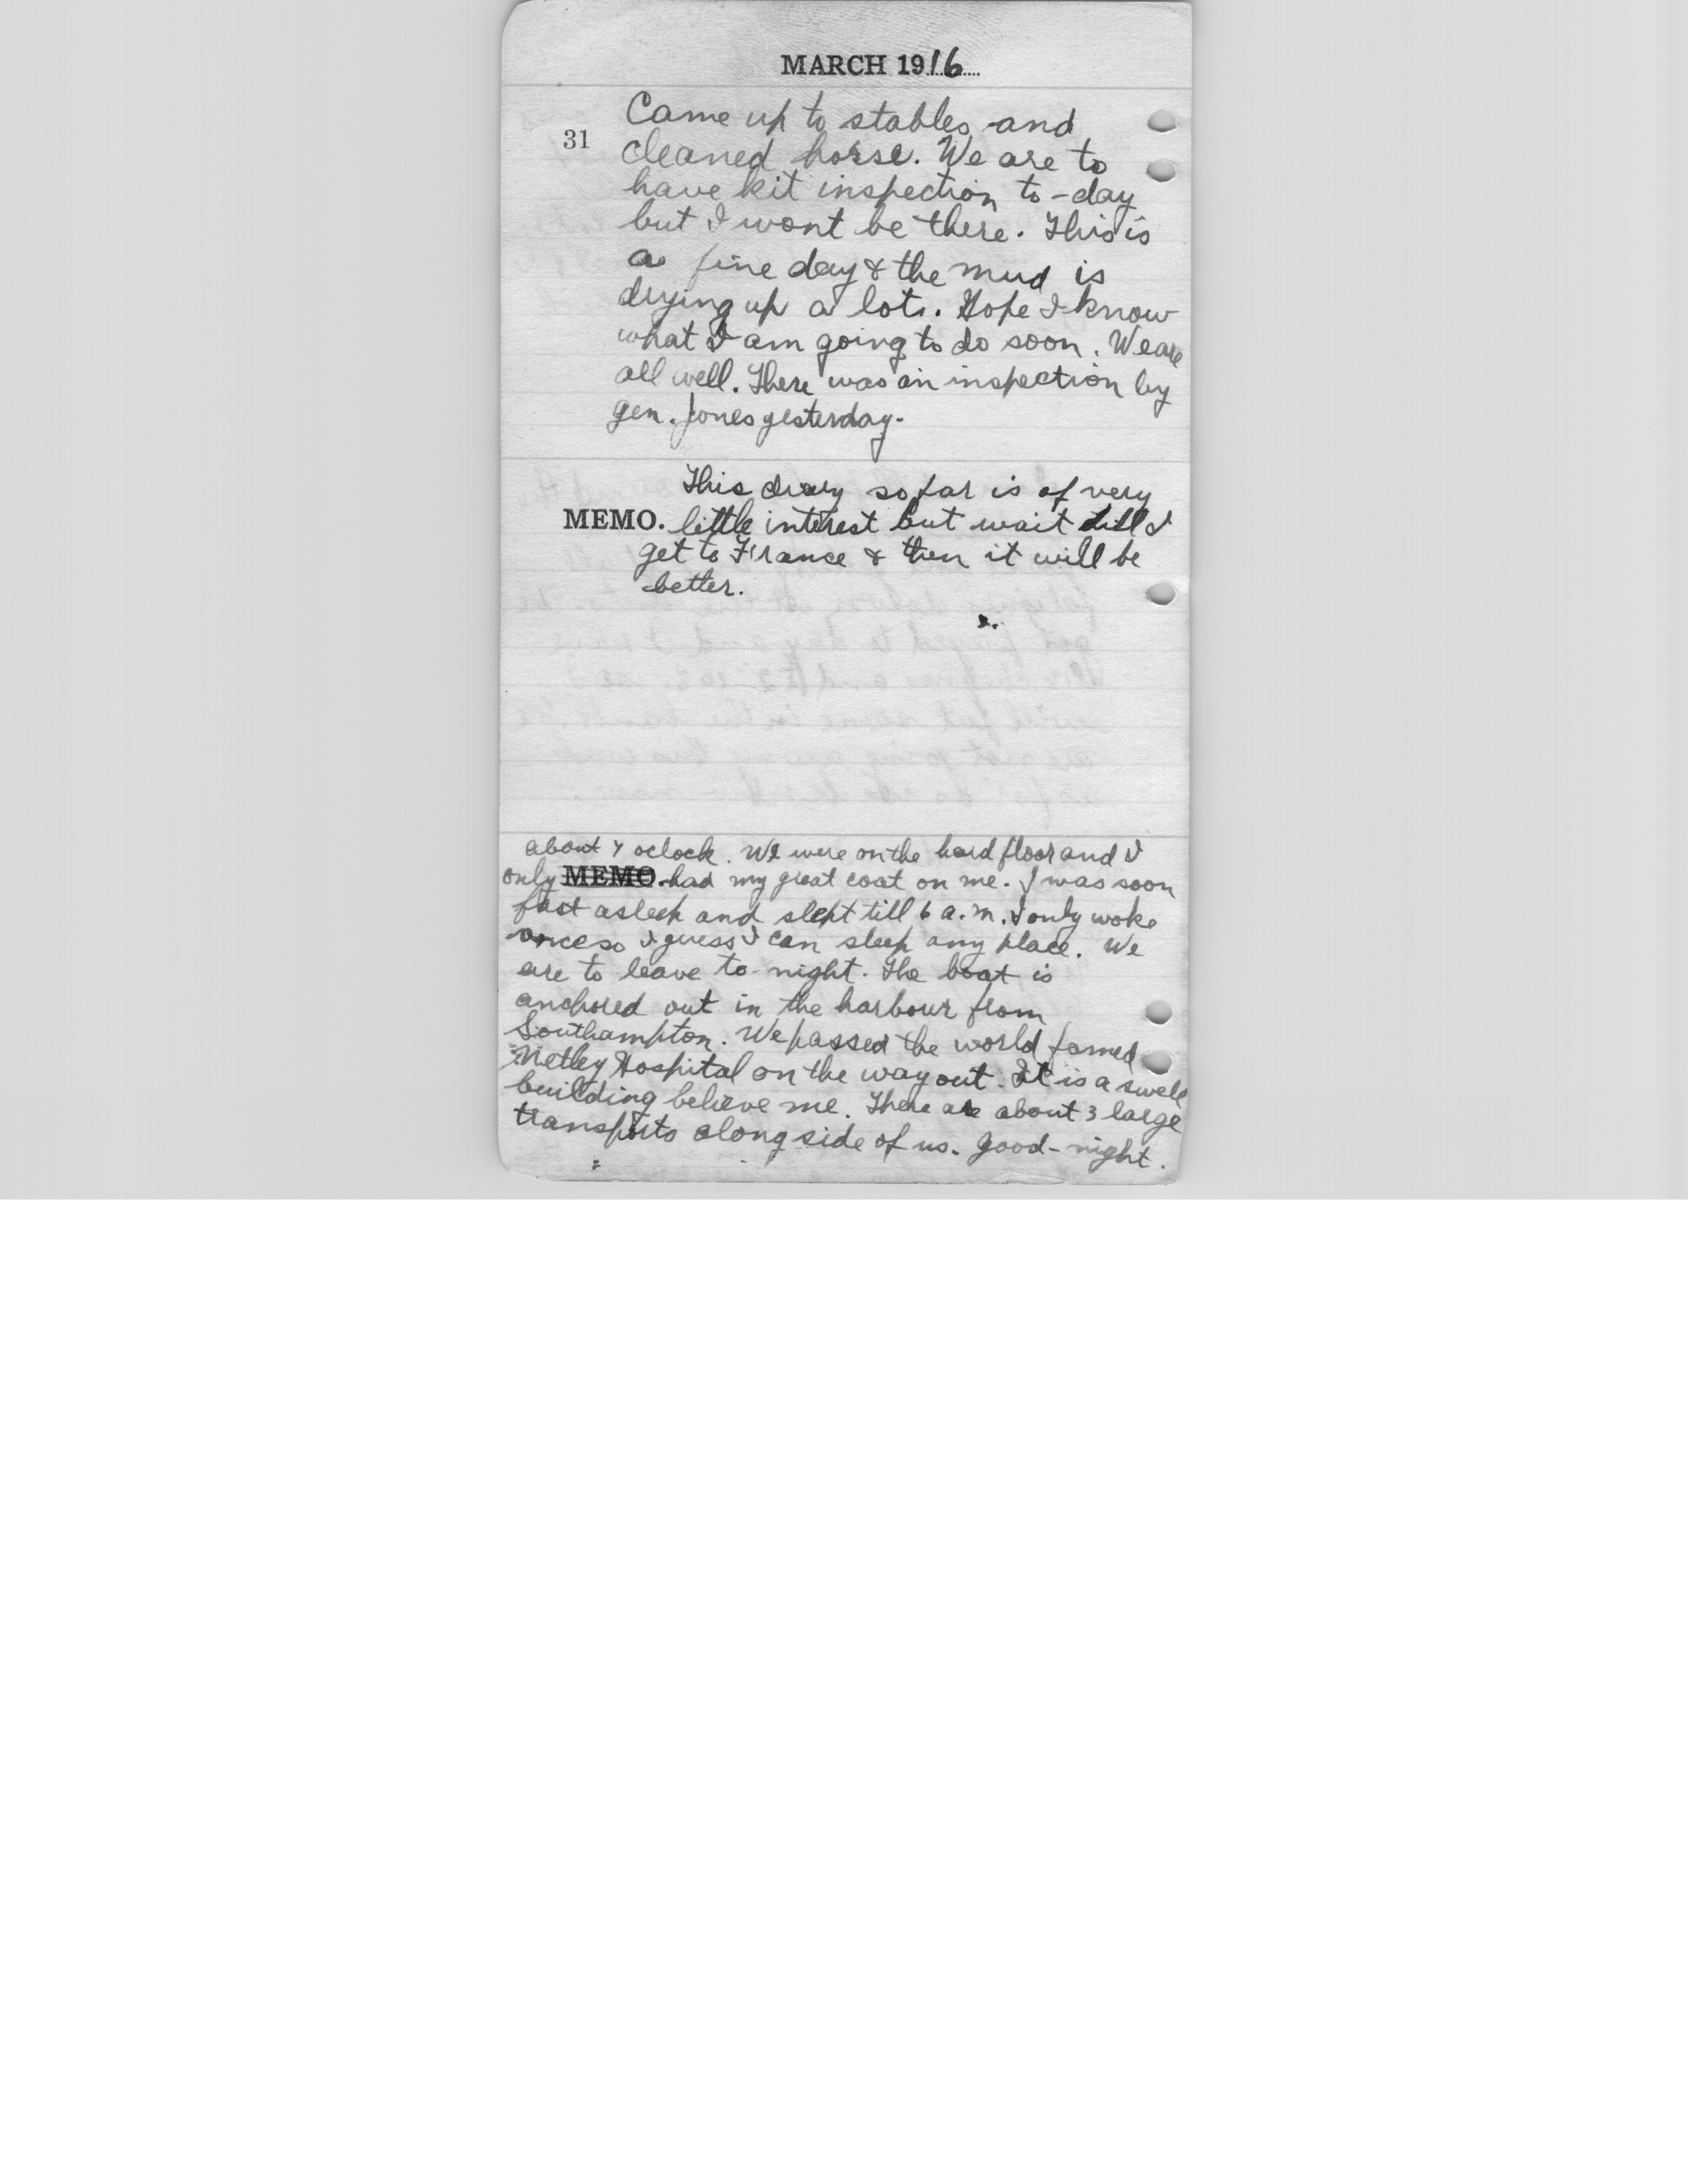 MARCH 1916
31
Came up to stables and
cleaned horse. We are to
have kit inspection to-day
but I wont be there. This is
a fine day & the mud is
drying up a lot. Hope I know
what I am going to do soon. We are
all well. There was an inspection by
gen. Jones yesterday.
This diary so far is of very
MEMO. little interest but wait till I
get to France & then it will be
better.
about 7 oclock. We were on the hard floor and I
only MEMO. had my great coat on me. I was soon
fast asleep and slept till 6 a.m. I only woke
once so I guess I can sleep any place. We
are to leave to-night. The boat is
anchored out in the harbour from
Southampton. We passed the world famed
Netley Hospital on the way out. It is a swell
building believe me. There are about 3 large
transports along side of us. Good-night.